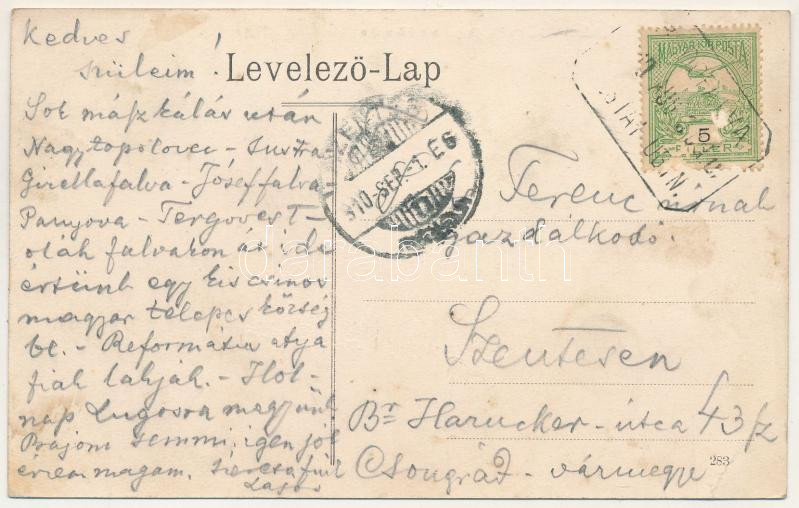 Kedves
szüleim!
Levelező-Lap
Sok mászkálás után
Nagytopolovec - Susitra
Girellafalva - Józseffalva
Panyova - Tergovest -
oláh falvakon át ide
értünk egy kis csinos
magyar telepes község
be. - Református atya
fiak lakják. - Hol-
nap Lugosra megyünk
Bajom semmi, igen jól
érzem magam.
Lajos
MAGYAR KIR. POSTA
5
FILLÉR
910 SEP -1. E6
Ferenc úrnak
gazdálkodó.
Szentesen
Br Harucker - utca 43/z
Csongrád - vármegye
283
darabanth